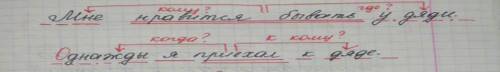 кому? где?
Мне нравится бывать у дяди.
когда? к кому?
Однажды я приехал к дяде.